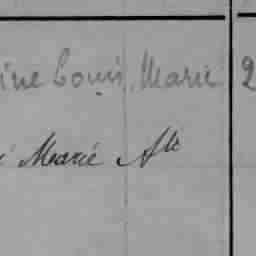 ine Louis Marie 2
Marie Alt